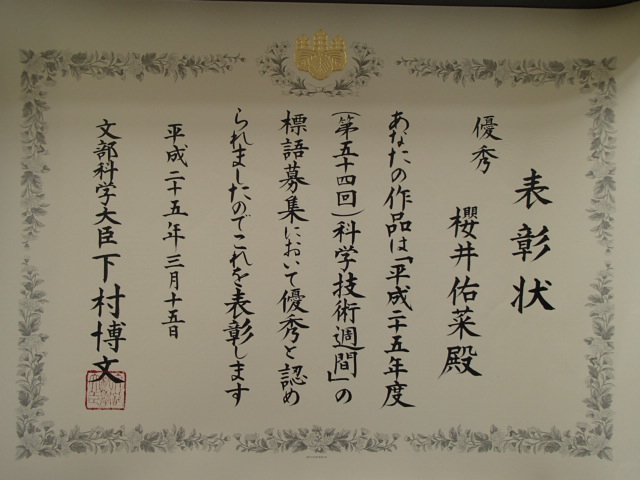 表彰状
優秀
櫻井佑菜殿
あなたの作品は「平成二十五年度
(第五十四回)科学技術週間」の
標語募集において優秀と認め
られましたのでこれを表彰します
平成二十五年三月十五日
文部科学大臣下村博文